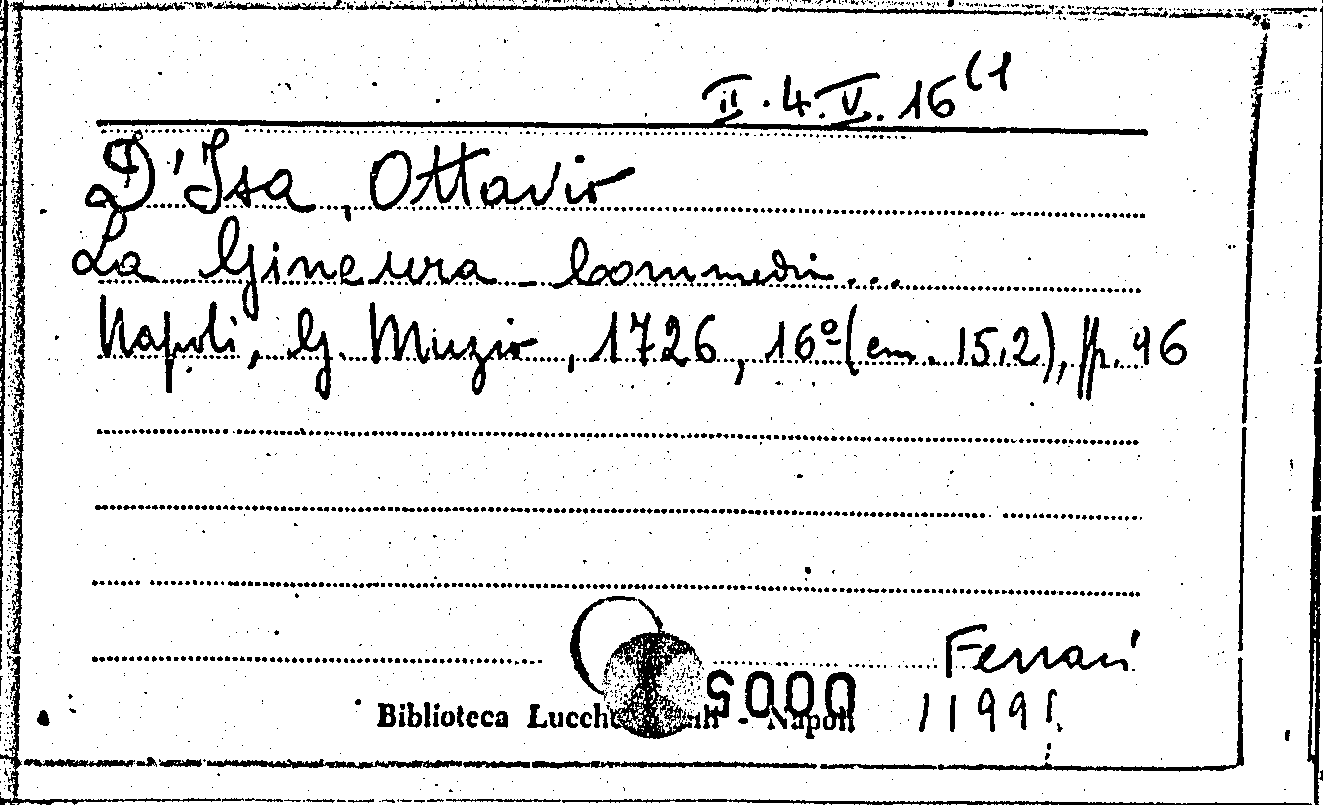 II.4.V.16(1
D'Isa, Ottavio
La Ginevra - Commedia...
Napoli, G. Muzio, 1726, 16º (cm. 15,2), pp. 96
Ferrari
5000
Biblioteca - Napoli